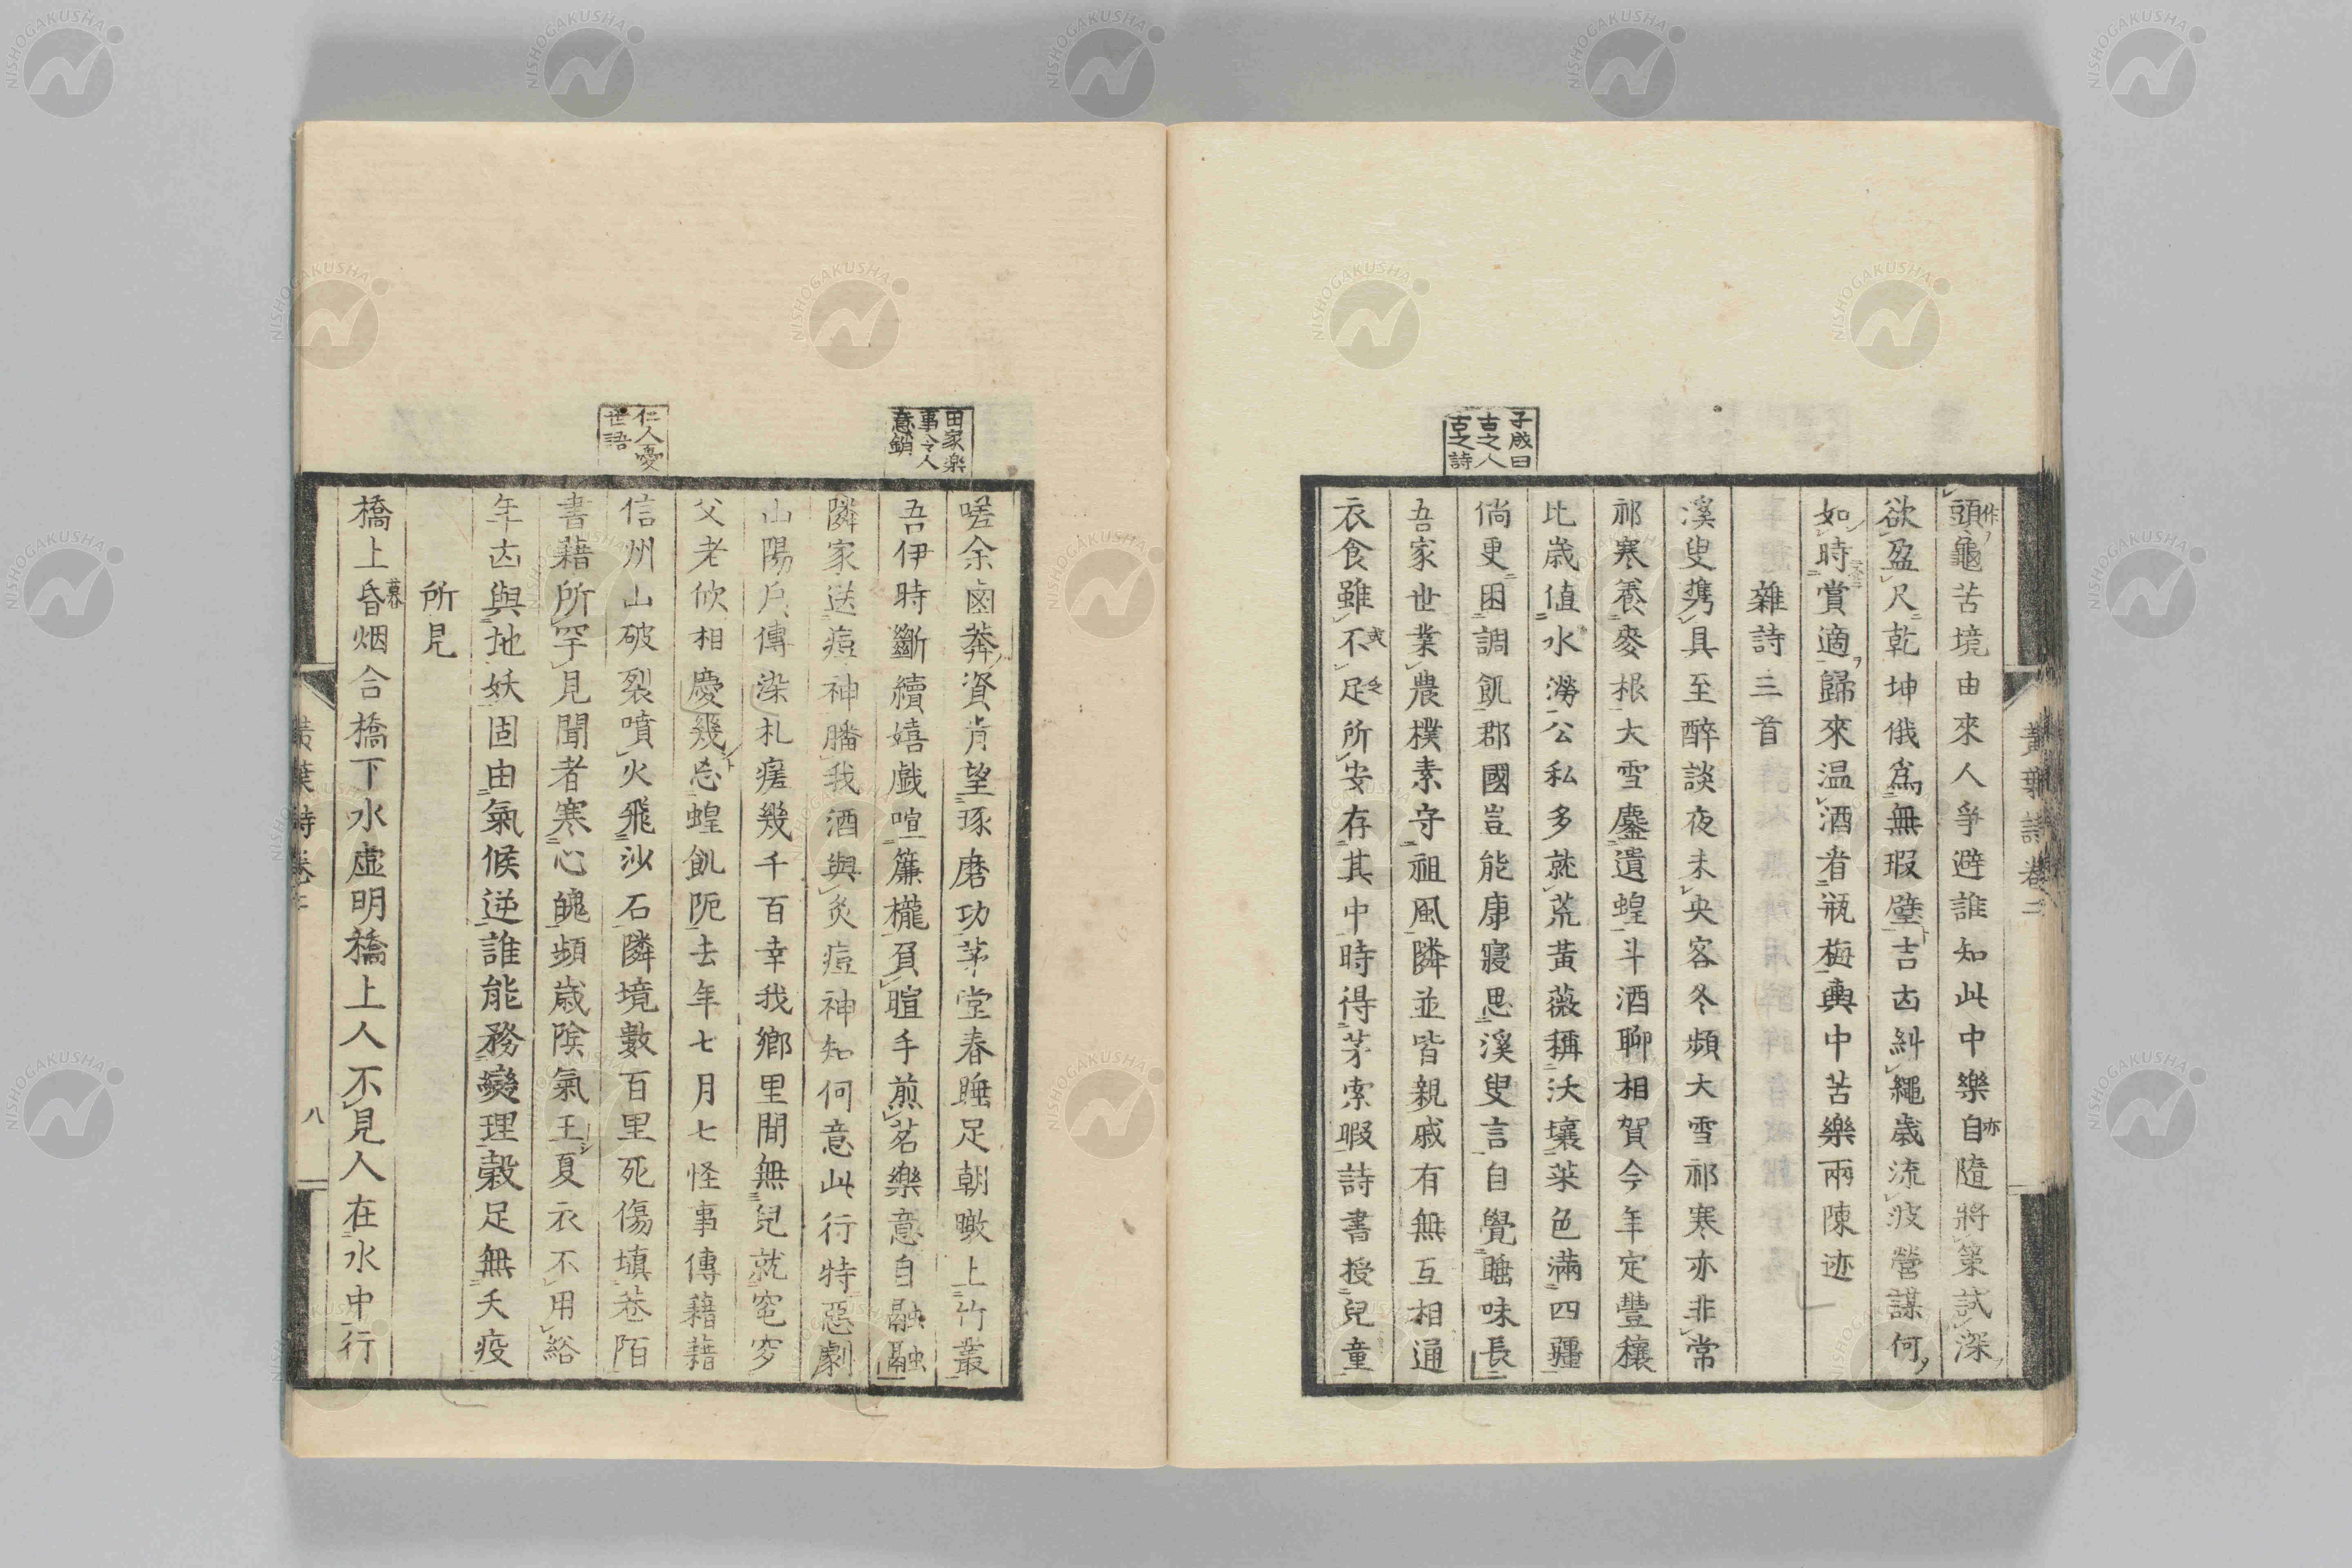 子成曰
古之人
古之詩
頭龜苦境由來人爭避誰知此中樂自隨將策試深
欲盈尺乾坤俄爲無瑕璧吉凶糾繩歲流波營謀何
如時賞適歸來温酒看瓶梅輿中苦樂兩陳迹
雜詩三首
溪叟携具至醉談夜未央客冬頻大雪祁寒亦非常
祁寒養麥根大雪鏖遺蝗斗酒聊相賀今年定豐穰
比歲値水澇公私多就荒黃薇稱沃壤菜色滿四疆
倘更困調飢郡國豈能康寢思溪叟言自覺睡味長
吾家世業農樸素守祖風隣並皆親戚有無互相通
衣食雖不足所安存其中時得茅索暇詩書授兒童
黃葉詩卷二
田家樂
事令人
意銷
仁人憂
世語
嗟余鹵莽資肯望琢磨功茅堂春睡足朝暾上竹叢
吾伊時斷續嬉戲喧簾櫳負暄手煎茗樂意自融融
隣家送痘神膰我酒與炙痘神知何意此行特惡劇
山陽戶傳染札瘥幾千百幸我鄉里間無兒就窀穸
父老欣相慶幾忘蝗飢阨去年七月七怪事傳藉藉
信州山破裂噴火飛沙石隣境數百里死傷塡巷陌
書籍所罕見聞者寒心魄頻歲陰氣王夏衣不用綌
年凶與地妖固由氣候逆誰能務燮理穀足無夭疫
所見
橋上昏烟合橋下水虛明橋上人不見人在水中行
八
NISHOGAKUSHA